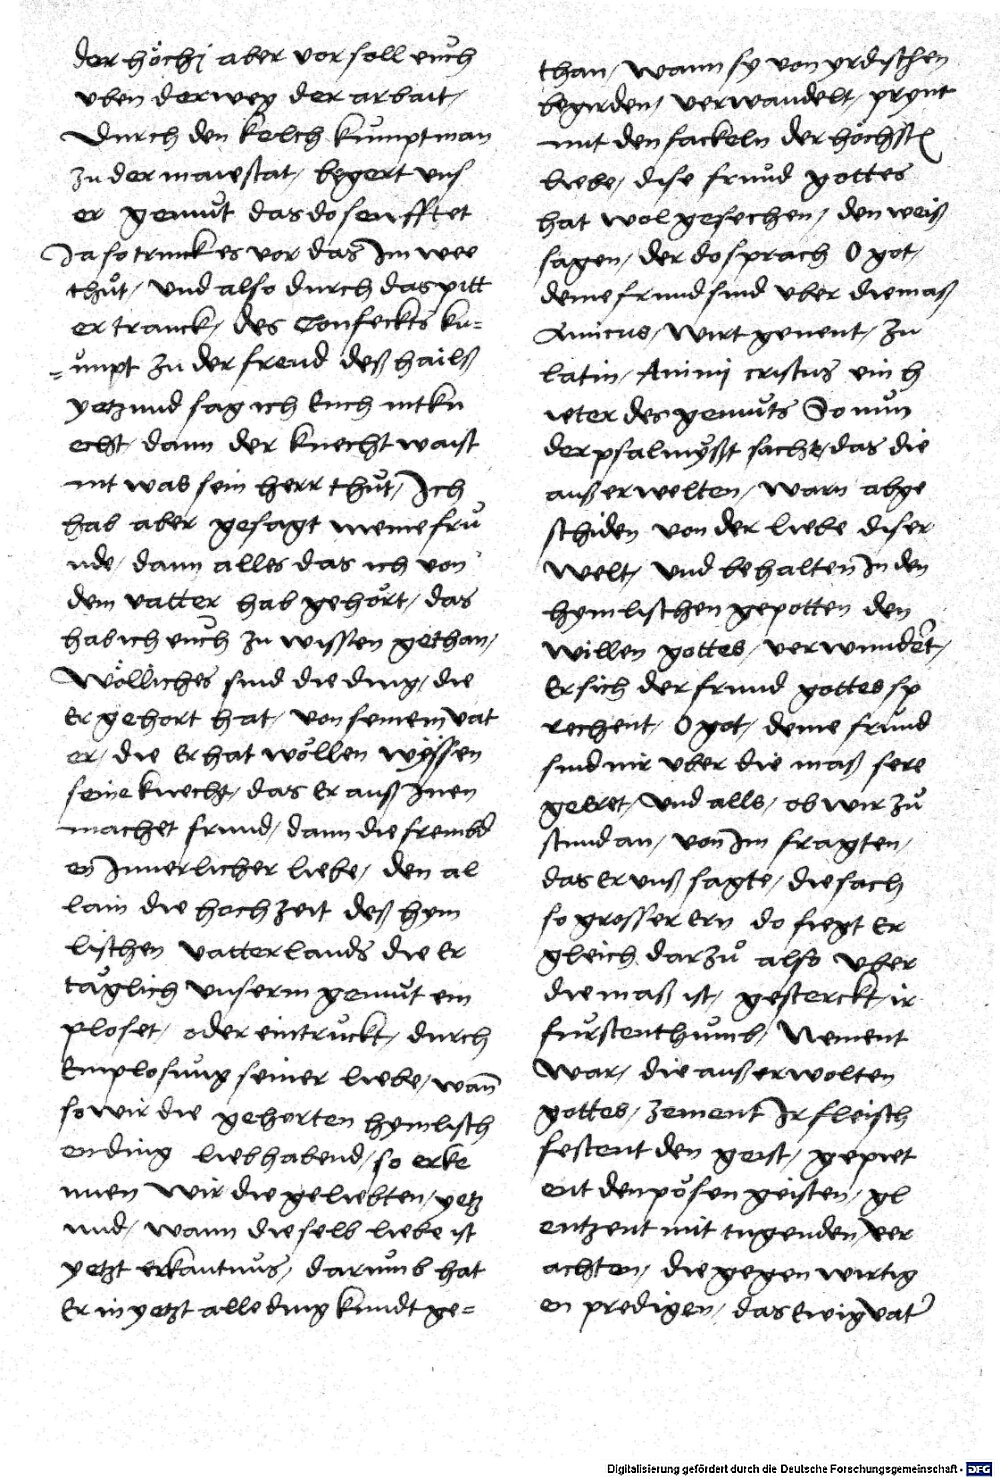 der höchj aber vor soll eüch
vben der weg der arbait /
Durch den kelch kumpt man
zu der maiestat / begert uns
er gemüt das do senfftet
Ja so trinck es vor das Im wee
thůt / vnd also durch das pitt
er tranck / des Confeckts ku=
=umpt zu der freud deß hailß
yetzund sag ich Euch nit kn
echt / dann der knecht waist
nit was sein herr thůt / Ich
hab aber gesagt meine frü
nde / dann alles das ich von
dem vatter hab gehört / das
hab ich eüch zu wissen gethan /
Wölliches sind die ding / die
Er gehort hat / von seinem vat
er / die Er hat wöllen wÿssen
seine knecht / das Er auß Inen
machet frund / dann die frewd
en Innerlicher liebe / den al
lain die hochzeit deß hym
lischen vatterlands die Er
täglich vnserm gemüt ein
ploset / oder eintruckt / durch
Einplosung seiner liebe / wan̄
so wir die gehorten hymlisch
en ding liebhabend / so erke
nnen wir die geliebten / yetz
und / wann die selb liebe ist
yetzt erkantnus / darumb hat
Er in yetzt alle ding kundt ge=
than / wann sy von yrdischen
begirden / verwandelt / prynt
mit den fackeln der höchsten
liebe / dise frund gottes
hat wol gesechen / den weiß
sagen / der do sprach O got /
deine frund sind vber die maß
Amicus / wirt genent / zu
latin / Animi cristus ein h
ieter des gemüts So nun
der psalmyßt sache / das die
auß erwelten / warn abge
schiden von der liebe diser
welt / vnd behalten In den
hymlischen gepotten den
willen gottes / verwundert /
Er sich der frund gottes sp
rechent / O got / deine frund
sind mir vber die maß sere
geeret / vnd alls / ob wir zů
stund an / von Im fragten /
das Er vnß sagte / die sach
so grosser Ern do fiegt Er
gleich darzů also vber
die maß ist / gesterckt ir
furstenthumb / Nement
war / die auß erwolten
gottes / zement Ir fleisch
festent den geist / gepiet
ent den pösen geisten / gl
entzent mit tugenden / ver
achten / die gegenwirtig
en predigen / das Ewig vatter
Digitalisierung gefördert durch die Deutsche Forschungsgemeinschaft - DFG